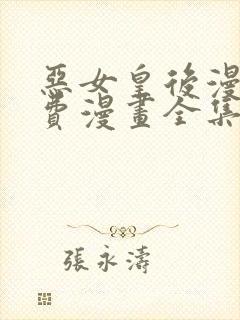 惡女皇後漫
費漫畫全集
張永濤